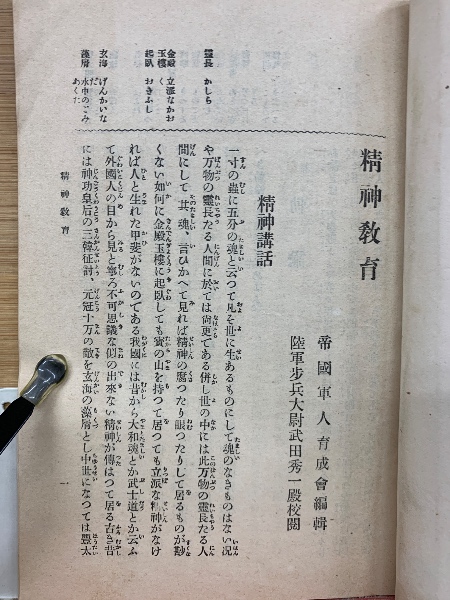 精神教育
帝國軍人育成會編輯
陸軍步兵大尉武田秀一殿校閱
精神講話
一寸の蟲に五分の魂と云つて凡そ世に生あるものにして魂のなきものはない況
や万物の靈長たる人間に於ては尙更である併し世の中には此万物の靈長たる人
間にして其魂、言ひかへて見れば精神の腐つたり眠つたりして居るものが尠
くない如何に金殿玉樓に起臥しても寶の山を持つて居つても立派な精神がなけ
れば人と生れた甲斐がないのである我國には昔から大和魂とか武士道とか云ふ
て外國人の目から見ると寧ろ不可思議な似の出來ない精神が傳はつて居る古き昔
には神功皇后の三韓征討、元冦十万の敵を玄海の藻屑とし中世になつては豐太
靈長 かしら
金殿玉樓 立派なおやしき
起臥 おきふし
玄海 げんかいなだ
藻屑 水中のごみあくた
精神教育
一